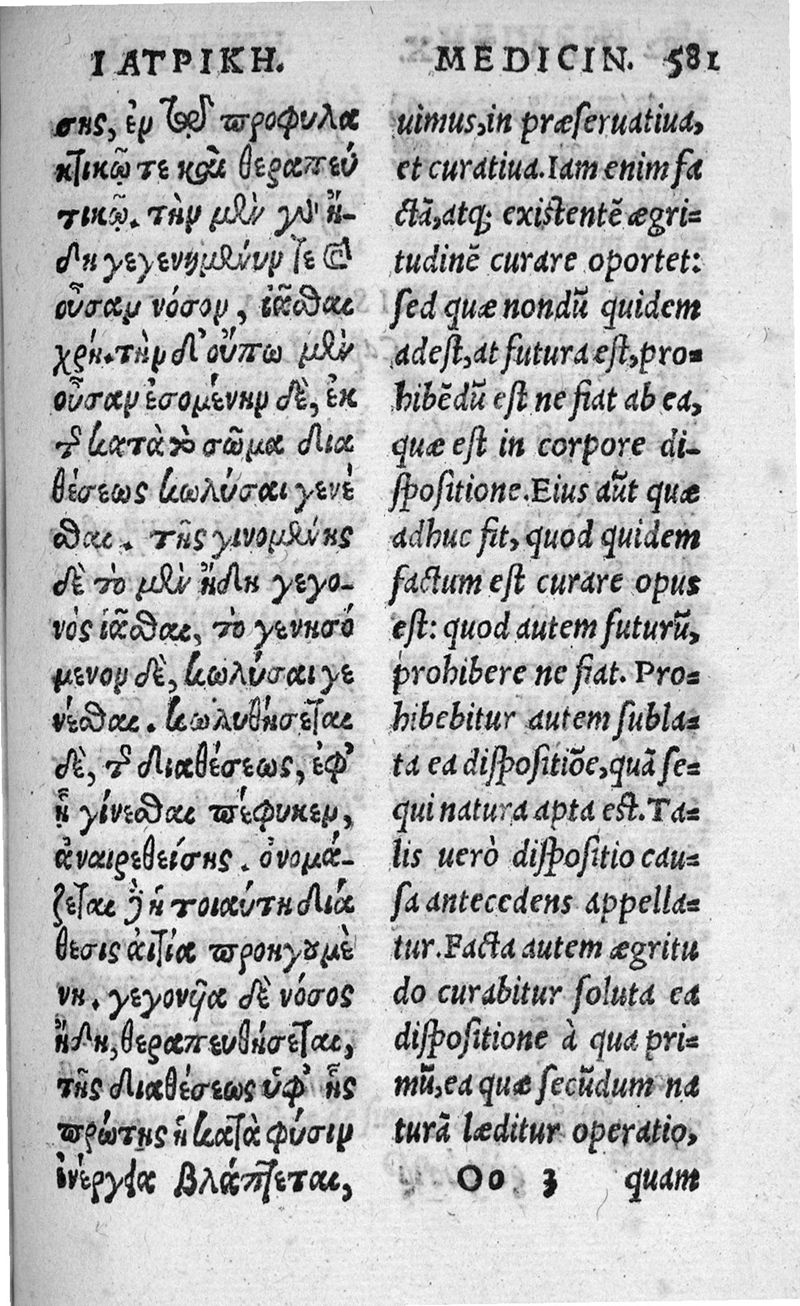 ΙΑΤΡΙΚΗ.
σης, ἐν τῷ προφυλα
κτικῷ τε καὶ θεραπευ
τικῷ. τὴν μὲν γὰρ ἤ-
δη γεγενημένην τε καὶ
οὖσαν νόσον, ἰᾶσθαι
χρή. τὴν δ' οὔπω μὲν
οὖσαν ἐσομένην δὲ, ἐκ
τῆς κατὰ τὸ σῶμα δια
θέσεως κωλῦσαι γενέ
σθαι. τῆς γινομένης
δὲ τὸ μὲν ἤδη γεγο-
νὸς ἰᾶσθαι, τὸ γενησό
μενον δὲ, κωλῦσαι γε
νέσθαι. κωλυθήσεται
δὲ, τῆς διαθέσεως, ἐφ'
ᾗ γίνεσθαι πέφυκεν,
ἀναιρεθείσης. ὀνομά-
ζεται δὲ ἡ τοιαύτη διά
θεσις αἰτία προηγουμέ
νη. γεγονυῖα δὲ νόσος
ἤδη, θεραπευθήσεται,
τῆς διαθέσεως ὑφ' ἧς
πρώτης ἡ κατὰ φύσιν
ἐνέργεια βλάπτεται,
MEDICIN. 581
uimus, in præseruatiua,
et curatiua. Iam enim fa
ctã, atq; existentẽ ægri-
tudinẽ curare oportet:
sed quæ nondũ quidem
adest, at futura est, pro-
hibẽdũ est ne fiat ab ea,
quæ est in corpore di-
spositione. Eius aũt quæ
adhuc fit, quod quidem
factum est curare opus
est: quod autem futurũ,
prohibere ne fiat. Pro-
hibebitur autem subla-
ta ea dispositiõe, quã se-
qui natura apta est. Ta-
lis uerò dispositio cau-
sa antecedens appella-
tur. Facta autem ægritu
do curabitur soluta ea
dispositione à qua pri-
mũ, ea quæ secũdum na
turã læditur operatio,
Oo 3 quam